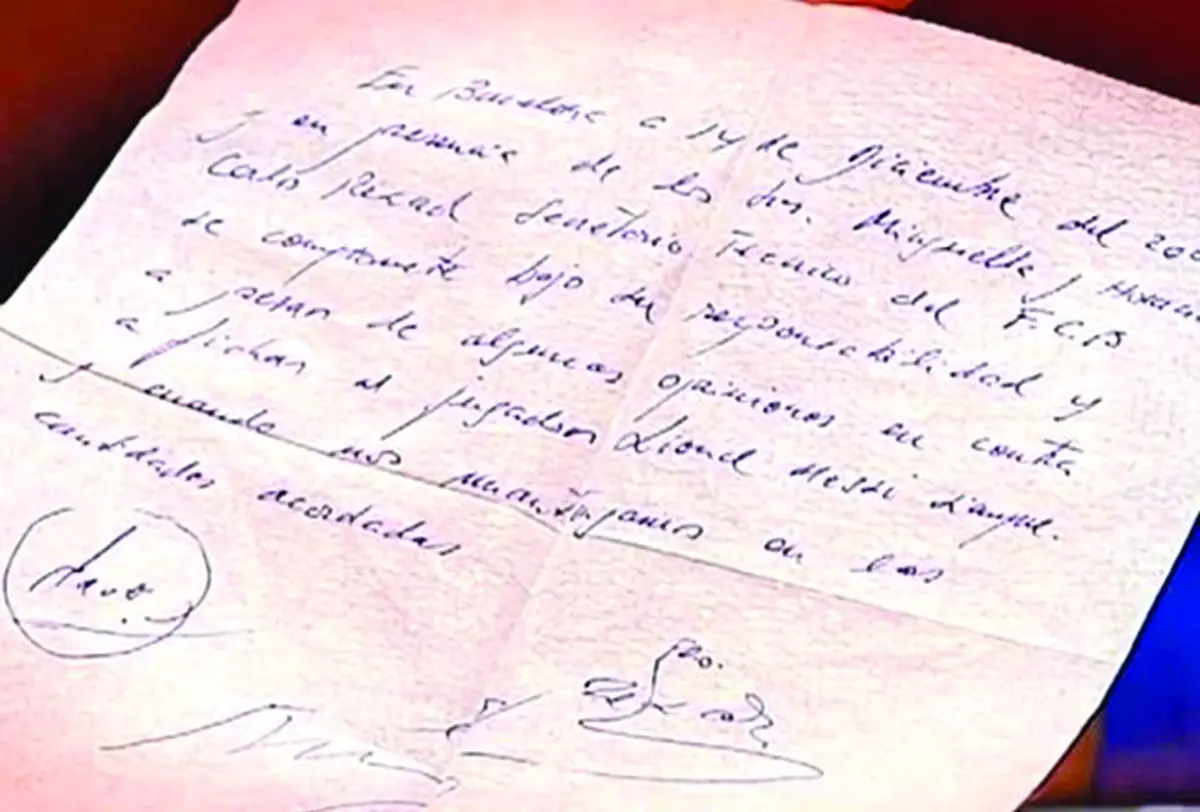 En Barcelona a 14 de Diciembre del 200
y en presencia de los Srs. Minguella y Horacio
Carlos Rexach Secretario Tecnico del F.C.B
se compromete bajo su responsabilidad y
a pesar de algunas opiniones en contra
a fichar al jugador Lionel Messi siempre
y cuando nos mantengamos en las
cantidades acordadas